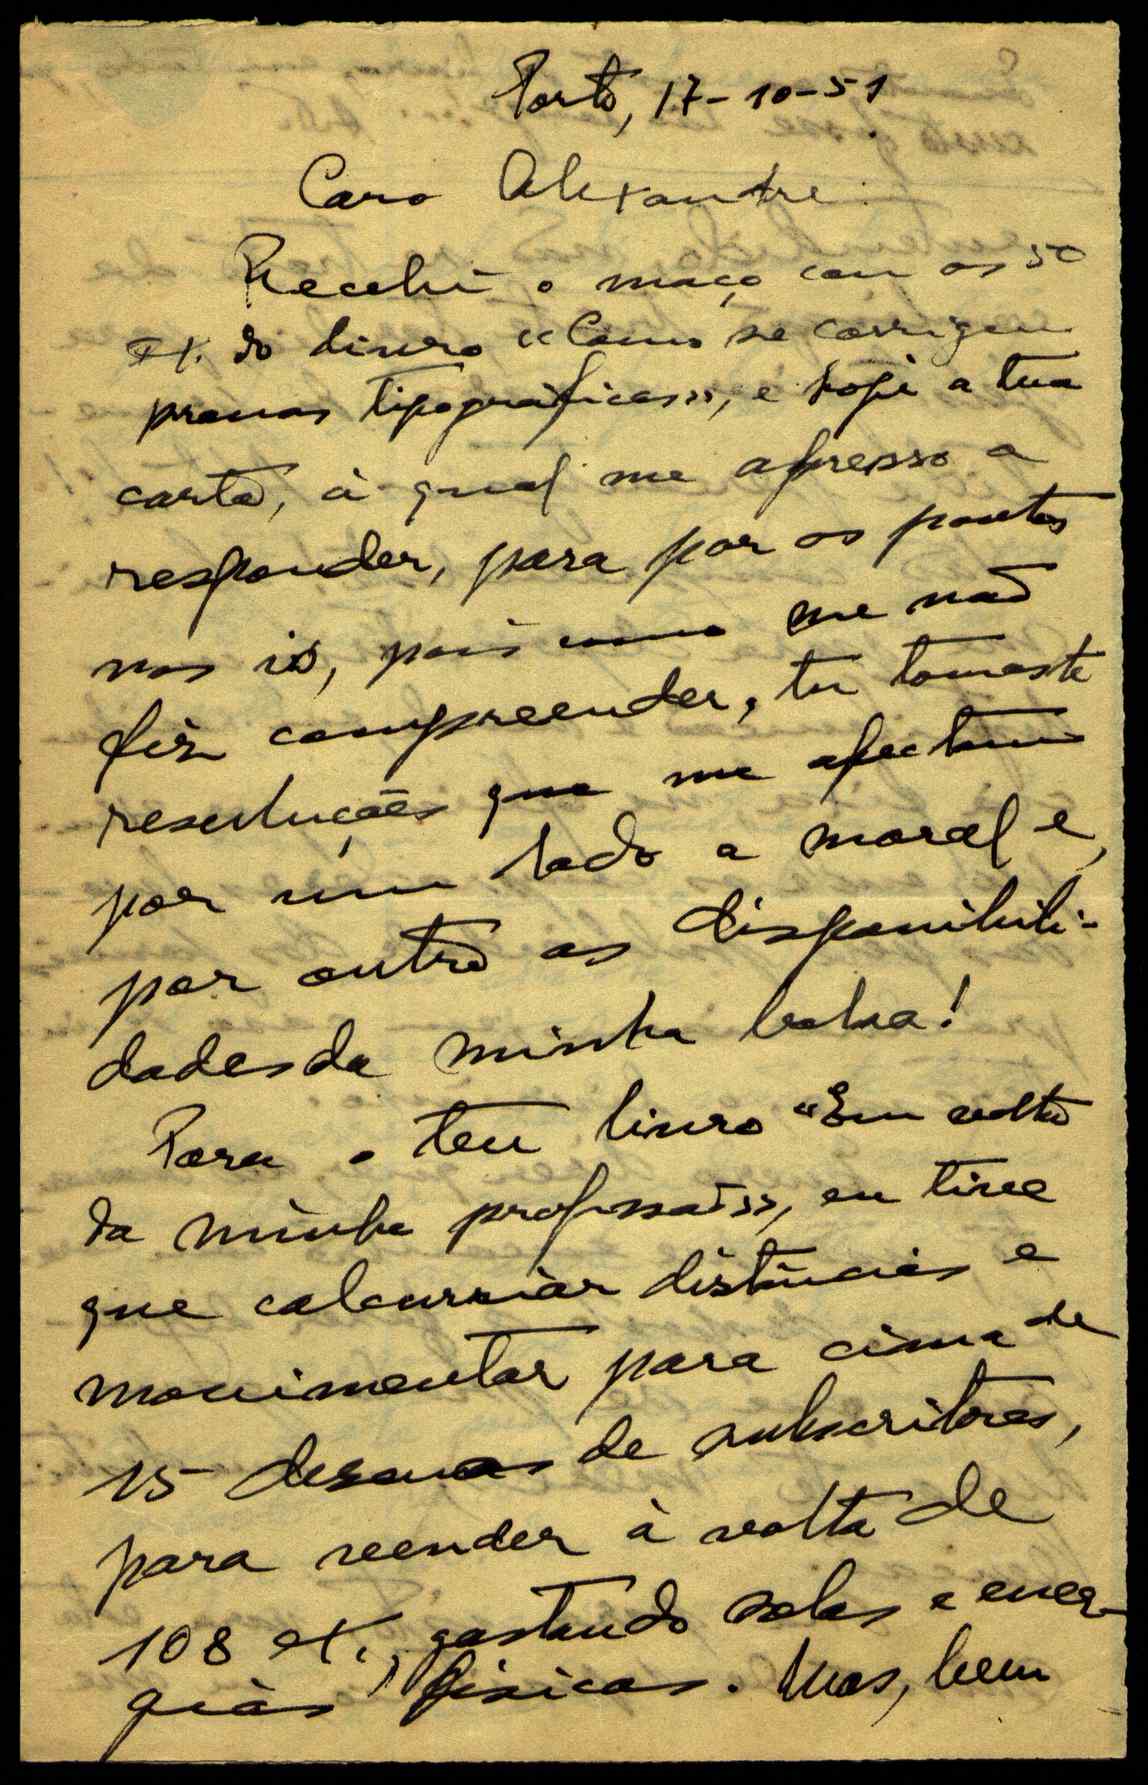 Porto, 17-10-51
Caro Alexandre:
Recebi o maço com os 50
ex. do livro «Como se corrigem
provas tipográficas», e hoje a tua
carta, à qual me apresso a
responder, para por os pontos
nos is, pois como me não
fiz compreender, tu tomaste
resoluções que me afectam
por um lado a moral e,
por outro as disponibili-
dades da minha bolsa!
Para o teu livro "Em volta
da minha profissão», eu tive
que calcurriar distâncias e
movimentar para cima de
15 dezenas de subscritores,
para vender à volta de
108 ex., gastando solas e ener-
gias físicas. Mas, bem